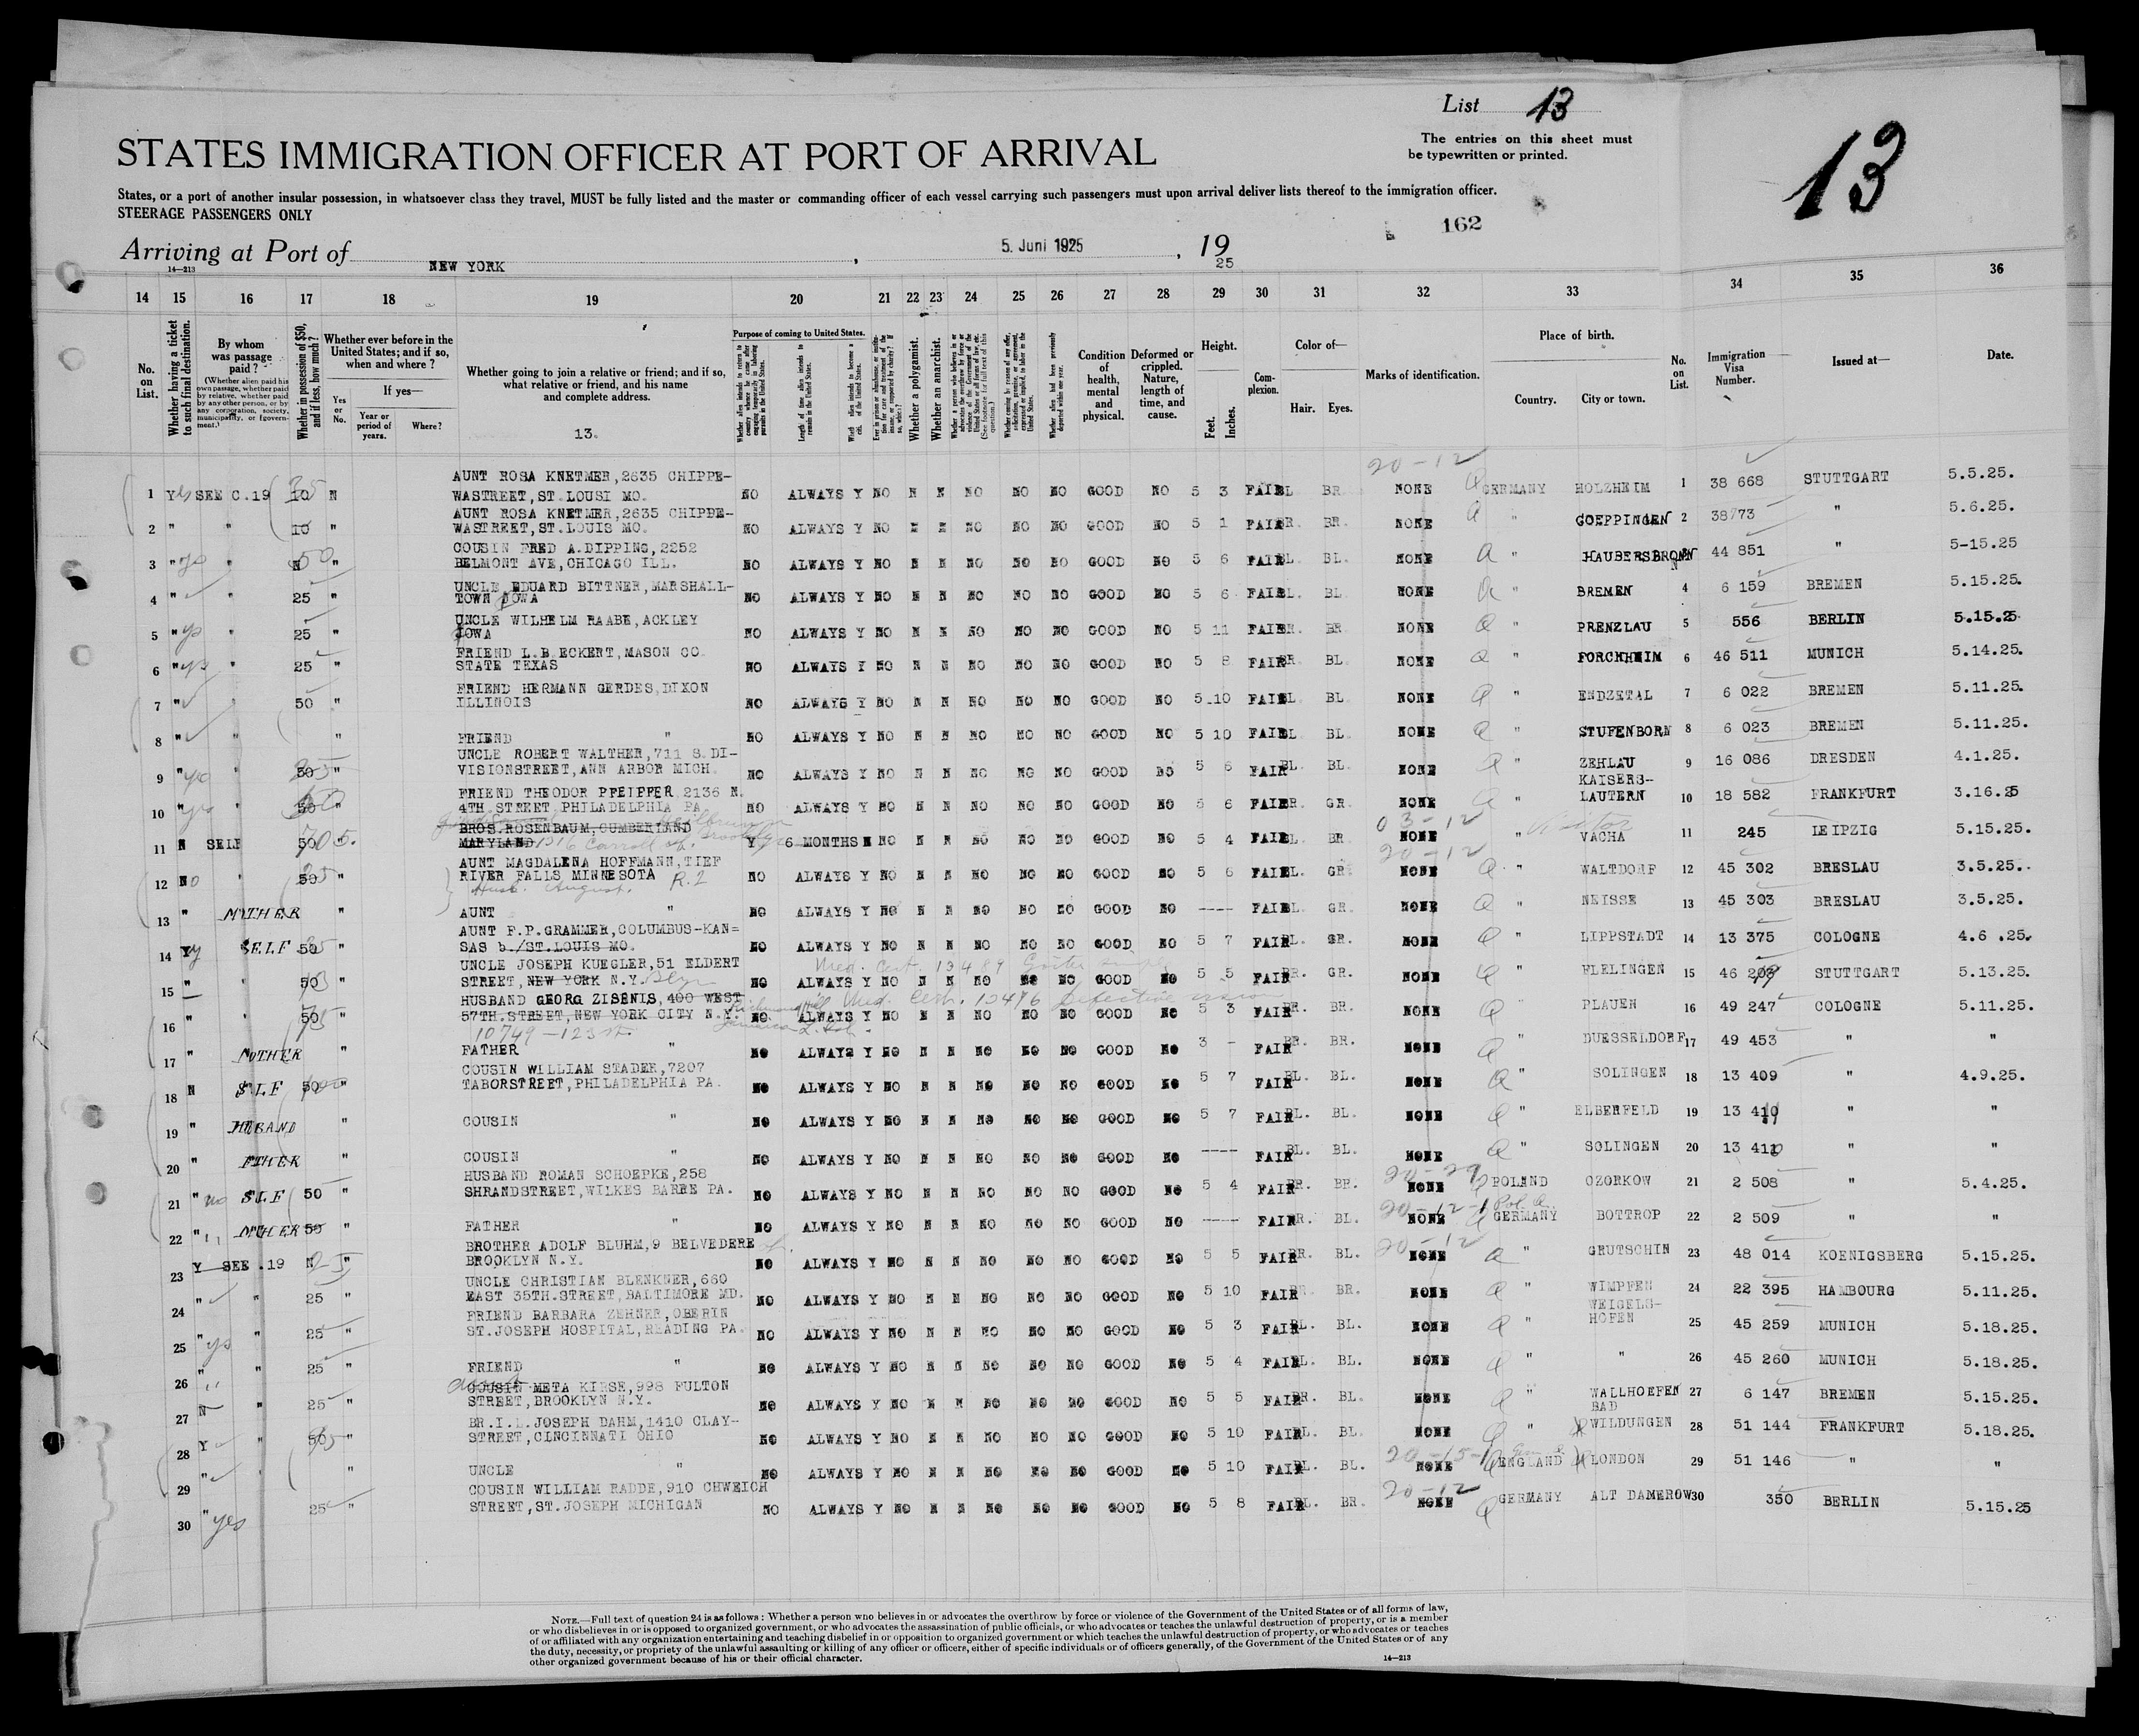 List 13
The entries on this sheet must
be typewritten or printed.
13
STATES IMMIGRATION OFFICER AT PORT OF ARRIVAL
States, or a port of another insular possession, in whatsoever class they travel, MUST be fully listed and the master or commanding officer of each vessel carrying such passengers must upon arrival deliver lists thereof to the immigration officer.
STEERAGE PASSENGERS ONLY
162
Arriving at Port of NEW YORK, 5. Juni 1925, 19 25
14—213
14 15 16 17 18 19 20 21 22 23 24 25 26 27 28 29 30 31 32 33 34 35 36
No. on List.
Whether having a ticket to such final destination.
By whom was passage paid?
(Whether alien paid his own passage, whether paid by relative, whether paid by any other person, or by any corporation, society, municipality, or government.)
Whether in possession of $50, and if less, how much?
Whether ever before in the United States; and if so, when and where?
Yes or No.
If yes—
Year or period of years.
Where?
Whether going to join a relative or friend; and if so, what relative or friend, and his name and complete address.
13.
Purpose of coming to United States.
Whether a polygamist.
Whether an anarchist.
Condition of health, mental and physical.
Deformed or crippled. Nature, length of time, and cause.
Height.
Feet.
Inches.
Complexion.
Color of—
Hair. Eyes.
Marks of identification.
Place of birth.
Country. City or town.
No. on List.
Immigration Visa Number.
Issued at—
Date.
20-12
1 Yes SEE C.19 10 N AUNT ROSA KNETMER,2635 CHIPPE-
WASTREET,ST.LOUSI MO. NO ALWAYS Y NO N N NO NO NO GOOD NO 5 3 FAIR BL BR NONE GERMANY HOLZHEIM 1 38 668 STUTTGART 5.5.25.
2 " " 10 " AUNT ROSA KNETMER,2635 CHIPPE-
WASTREET,ST.LOUIS MO. NO ALWAYS Y NO N N NO NO NO GOOD NO 5 1 FAIR BR. BR. NONE " GOEPPINGEN 2 38773 " 5.6.25.
3 " yes " 50 " COUSIN FRED A.DIPPING,2252
BELMONT AVE,CHICAGO ILL. NO ALWAYS Y NO N N NO NO NO GOOD NO 5 6 FAIR BL. BL. NONE " HAUBERSBRONN 44 851 " 5-15.25
4 " " 25 " UNCLE EDUARD BITTNER,MARSHALL-
TOWN IOWA NO ALWAYS Y NO N N NO NO NO GOOD NO 5 6 FAIR BL. BL. NONE " BREMEN 4 6 159 BREMEN 5.15.25.
5 " yes " 25 " UNCLE WILHELM RAABE,ACKLEY
IOWA NO ALWAYS Y NO N N NO NO NO GOOD NO 5 11 FAIR BR. BR. NONE " PRENZLAU 5 556 BERLIN 5.15.25.
6 " yes " 25 " FRIEND L.B.ECKERT,MASON CO.
STATE TEXAS NO ALWAYS Y NO N N NO NO NO GOOD NO 5 8 FAIR BR. BL. NONE " FORCKHEIM 6 46 511 MUNICH 5.14.25.
7 " " 50 " FRIEND HERMANN GERDES,DIXON
ILLINOIS NO ALWAYS Y NO N N NO NO NO GOOD NO 5.10 FAIR BL. BL. NONE " ENDZETAL 7 6 022 BREMEN 5.11.25.
8 " " " FRIEND " NO ALWAYS Y NO N N NO NO NO GOOD NO 5 10 FAIR BL. BL. NONE " STUFENBORN 8 6 023 BREMEN 5.11.25.
9 " yes " 50 " UNCLE ROBERT WALTHER,711 S.DI-
VISIONSTREET,ANN ARBOR MICH. NO ALWAYS Y NO N N NO NO NO GOOD NO 5 6 FAIR BL. BL. NONE ZEHLAU 9 16 086 DRESDEN 4.1.25.
10 " yes " 50 " FRIEND THEODOR PFEIFFER 2136 N.
4TH STREET PHILADELPHIA PA. NO ALWAYS Y NO N N NO NO NO GOOD NO 5 6 FAIR BR. GR. NONE KAISERS-
LAUTERN 10 18 582 FRANKFURT 3.16.25
11 N SELF 50 " BROS.ROSENBAUM,CUMBERLAND
MARYLAND 1316 Carroll st. Brooklyn Y 6 MONTHS N NO N N NO NO NO GOOD NO 5 4 FAIR BL. BR NONE 03-12 " Visitor VACHA 11 245 LEIPZIG 5.15.25.
20-12
12 NO 50 " AUNT MAGDALENA HOFFMANN,TIEF
RIVER FALLS MINNESOTA R.2 NO ALWAYS Y NO N N NO NO NO GOOD NO 5 6 FAIR BL. GR. NONE " WALTDORF 12 45 302 BRESLAU 3.5.25.
Husb. August.
13 " MOTHER " AUNT " NO ALWAYS Y NO N N NO NO NO GOOD NO ---- FAIR BL. GR. NONE " NEISSE 13 45 303 BRESLAU 3.5.25.
14 Y SELF 50 " AUNT F.P.GRAMMER,COLUMBUS-KAN=
SAS b./ST.LOUIS MO. NO ALWAYS Y NO N N NO NO NO GOOD NO 5 7 FAIR BL. GR. NONE " LIPPSTADT 14 13 375 COLOGNE 4.6 .25.
Med. Cert. 13489 Goiter simple
15 " 50 " UNCLE JOSEPH KUEGLER,51 ELDERT
STREET,NEW YORK N.Y. Blyn NO ALWAYS Y NO N N NO NO NO GOOD NO 5 5 FAIR BR. GR. NONE " FLELINGEN 15 46 STUTTGART 5.13.25.
Med. Cert. 13476 Defective vision
16 " 50 " HUSBAND GEORG ZISENIS,400 WEST
57TH.STREET,NEW YORK CITY N.Y. Richmond Hill NO ALWAYS Y NO N N NO NO NO GOOD NO 5 3 FAIR BR. BR. NONE " PLAUEN 16 49 247 COLOGNE 5.11.25.
10749-123 st. Jamaica L. Isl.
17 " MOTHER " FATHER " NO ALWAYS Y NO N N NO NO NO GOOD NO 3 - FAIR BR. BR. NONE " DUESSELDORF 17 49 453 " "
18 N SELF 50 " COUSIN WILLIAM STADER,7207
TABORSTREET,PHILADELPHIA PA. NO ALWAYS Y NO N N NO NO NO GOOD NO 5 7 FAIR BL. BL. NONE " SOLINGEN 18 13 409 " 4.9.25.
19 " HUSBAND " COUSIN " NO ALWAYS Y NO N N NO NO NO GOOD NO 5 7 FAIR BL. BL. NONE " ELBERFELD 19 13 " "
20 " FTHER " COUSIN " NO ALWAYS Y NO N N NO NO NO GOOD NO ---- FAIR BL. BL. NONE " SOLINGEN 20 13 " "
21 " no SELF 50 " HUSBAND ROMAN SCHOEPKE,258
SHRANDSTREET,WILKES BARRE PA. NO ALWAYS Y NO N N NO NO NO GOOD NO 5 4 FAIR BR. BR. NONE POLAND OZORKOW 21 2 508 " 5.4.25.
20-12-1
22 " MOTHER 50 " FATHER " NO ALWAYS Y NO N N NO NO NO GOOD NO ---- FAIR BR. BL. NONE GERMANY BOTTROP 22 2 509 " "
20-12
23 Y SEE .19 N " BROTHER ADOLF BLUHM,9 BELVEDERE
BROOKLYN N.Y. NO ALWAYS Y NO N N NO NO NO GOOD NO 5 5 FAIR BR. BL. NONE " GRUTSCHIN 23 48 014 KOENIGSBERG 5.15.25.
24 " " 25 " UNCLE CHRISTIAN BLENKNER,660
EAST 35TH.STREET,BALTIMORE MD. NO ALWAYS Y NO N N NO NO NO GOOD NO 5 10 FAIR BR. BR. NONE " WIMPFEN 24 22 395 HAMBOURG 5.11.25.
25 " yes " 25 " FRIEND BARBARA ZEHNER,OBERIN
ST.JOSEPH HOSPITAL,READING PA. NO ALWAYS Y NO N N NO NO NO GOOD NO 5 3 FAIR BL. BL. NONE " WEIGELS-
HOFEN 25 45 259 MUNICH 5.18.25.
26 " " 25 " FRIEND " NO ALWAYS Y NO N N NO NO NO GOOD NO 5 4 FAIR BL. BL. NONE " " 26 45 260 MUNICH 5.18.25.
27 N " 25 " COUSIN META KIRSE,998 FULTON
STREET,BROOKLYN N.Y. NO ALWAYS Y NO N N NO NO NO GOOD NO 5 5 FAIR BR. BL. NONE " WALLHOEFEN 27 6 147 BREMEN 5.15.25.
28 Y " 50 " BR.I.L.JOSEPH DAHM,1410 CLAY-
STREET,CINCINNATI OHIO NO ALWAYS Y NO N N NO NO NO GOOD NO 5 10 FAIR BL. BL. NONE " BAD
WILDUNGEN 28 51 144 FRANKFURT 5.18.25.
20-15-1
29 " " UNCLE " NO ALWAYS Y NO N N NO NO NO GOOD NO 5 10 FAIR BL. BL. NONE ENGLAND LONDON 29 51 146 " "
20-12
30 " yes 25 " COUSIN WILLIAM RADDE,910 CHWEICH
STREET,ST.JOSEPH MICHIGAN NO ALWAYS Y NO N N NO NO NO GOOD NO 5 8 FAIR BL. BR. NONE GERMANY ALT DAMEROW 30 350 BERLIN 5.15.25
NOTE.—Full text of question 24 is as follows: Whether a person who believes in or advocates the overthrow by force or violence of the Government of the United States or of all forms of law,
or who disbelieves in or is opposed to organized government, or who advocates the assassination of public officials, or who advocates or teaches the unlawful destruction of property, or is a member
of or affiliated with any organization entertaining and teaching disbelief in or opposition to organized government or which teaches the unlawful destruction of property, or who advocates or teaches
the duty, necessity, or propriety of the unlawful assaulting or killing of any officer or officers, either of specific individuals or of officers generally, of the Government of the United States or of any
other organized government because of his or their official character.
14—213